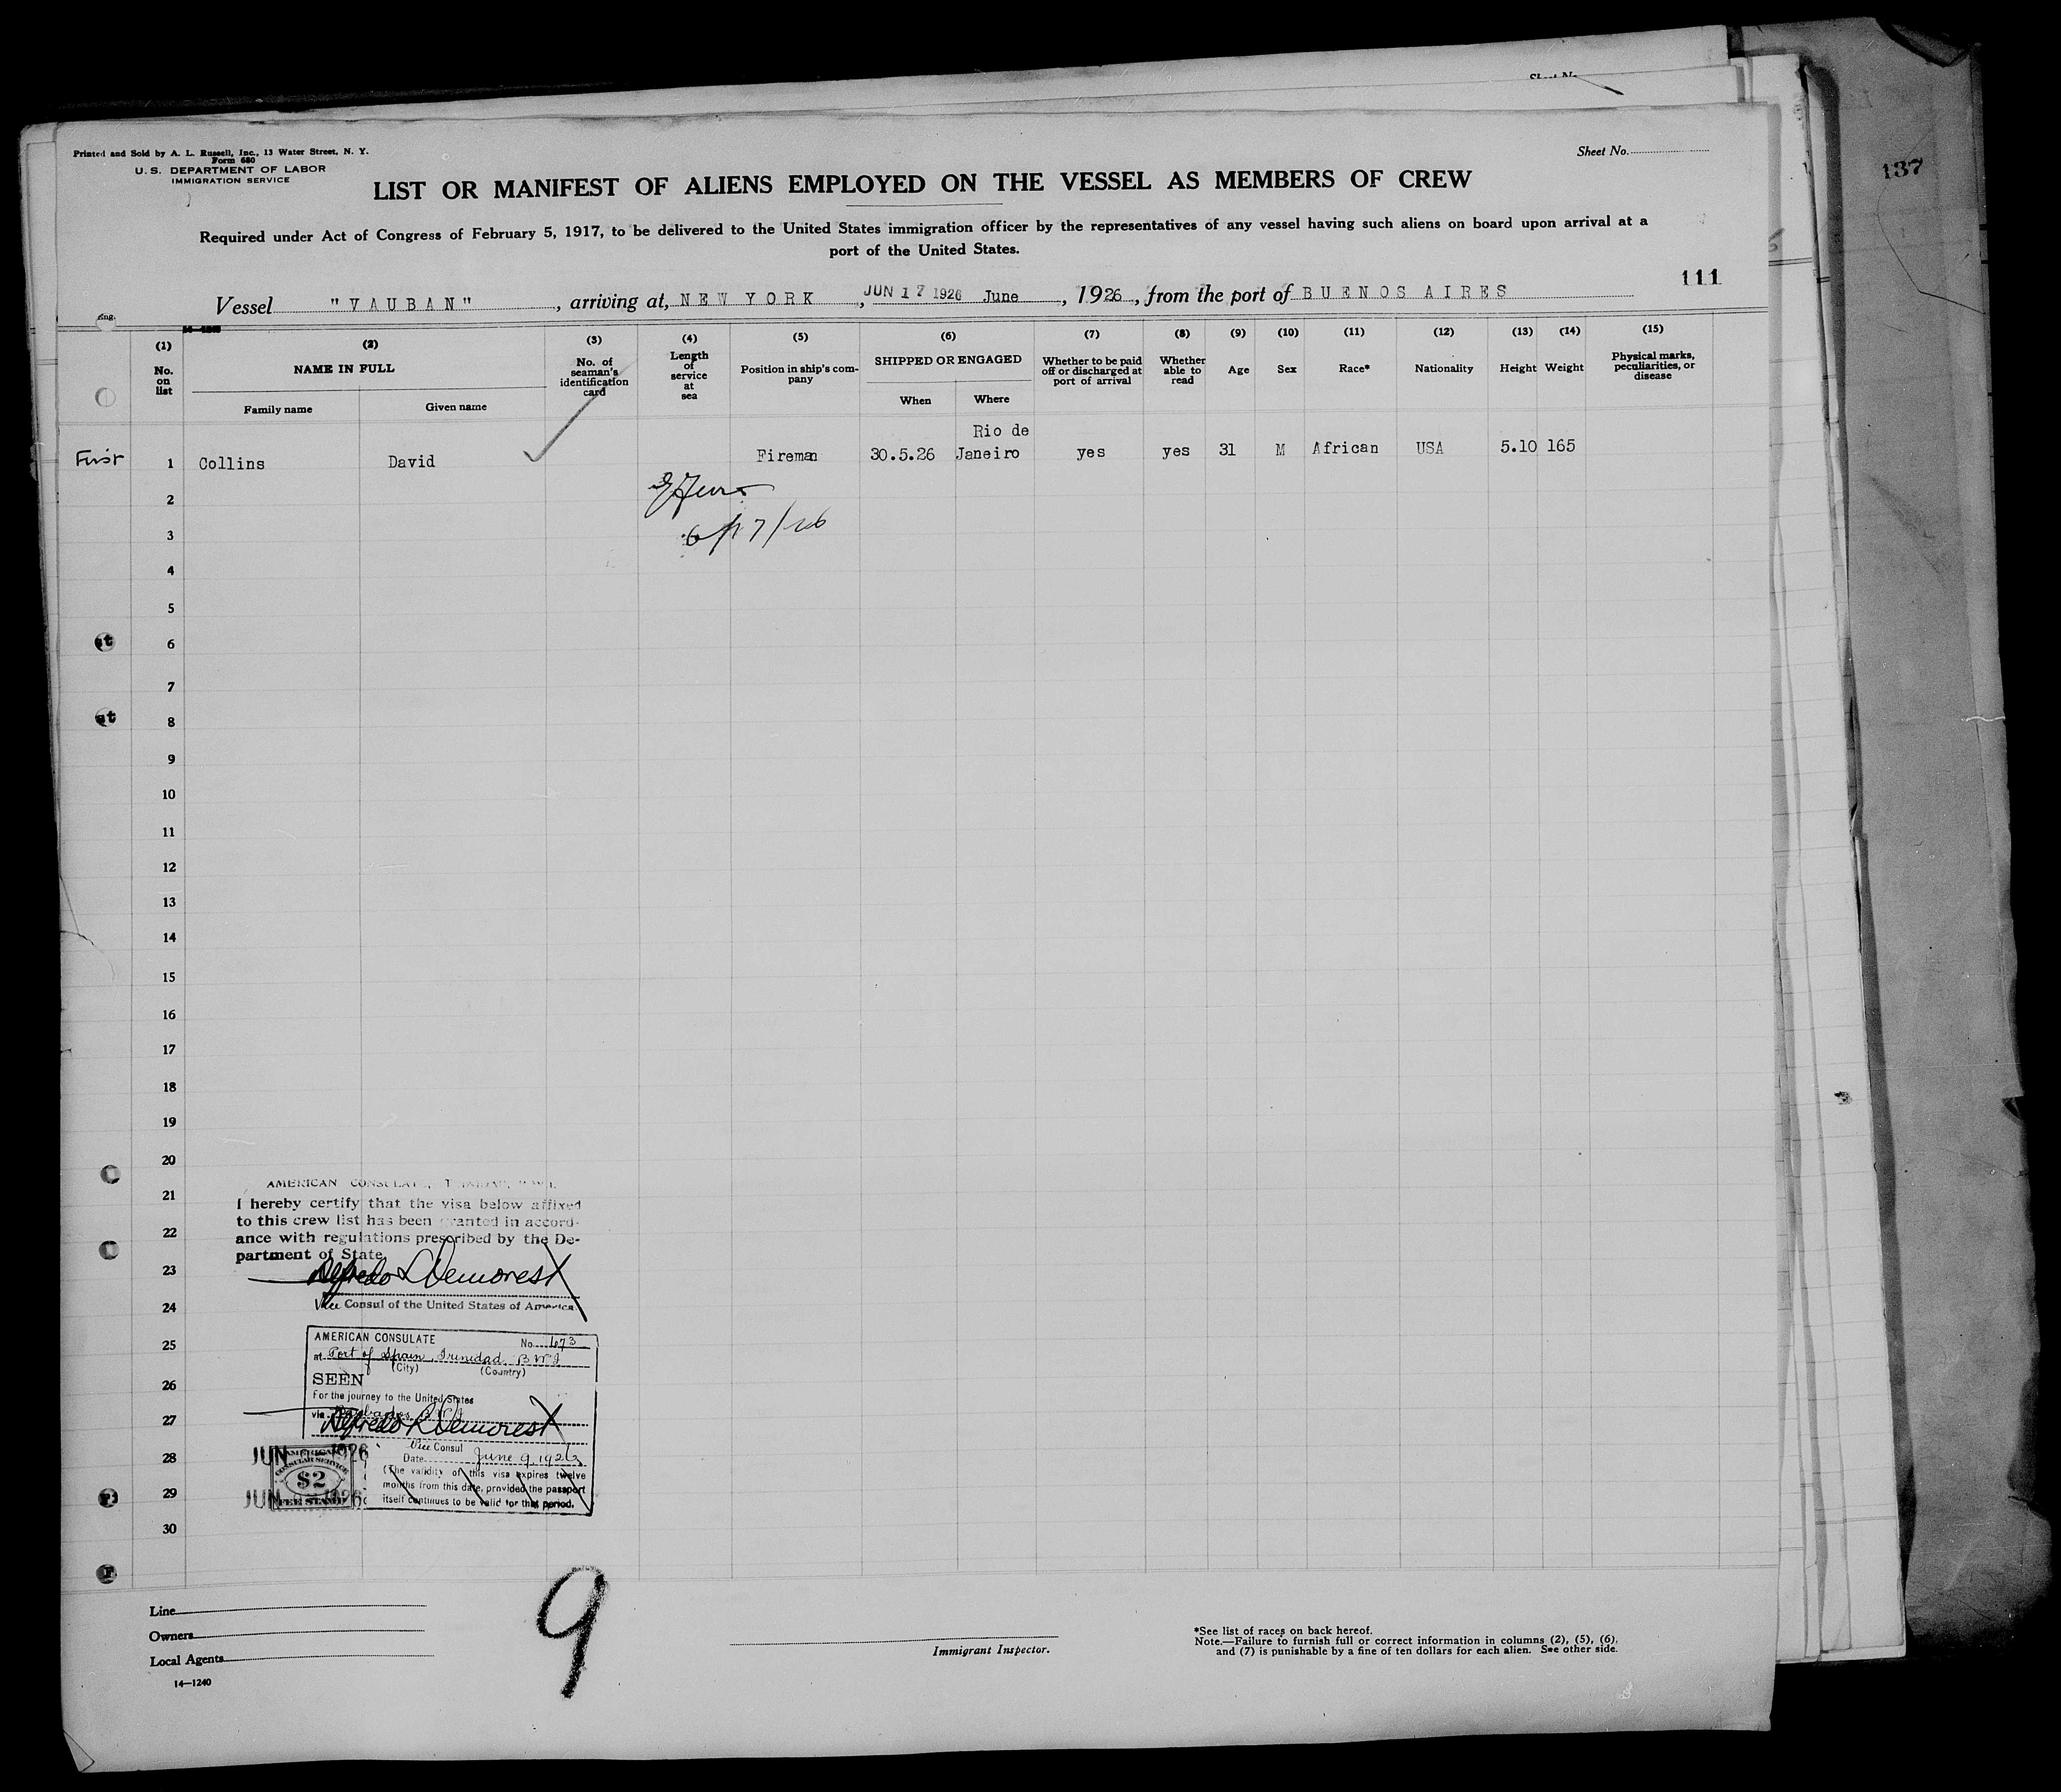 Sheet No.
137
Printed and Sold by A. L. Russell, Inc., 13 Water Street, N. Y.
Form 680
U. S. DEPARTMENT OF LABOR
IMMIGRATION SERVICE
Sheet No.
LIST OR MANIFEST OF ALIENS EMPLOYED ON THE VESSEL AS MEMBERS OF CREW
Required under Act of Congress of February 5, 1917, to be delivered to the United States immigration officer by the representatives of any vessel having such aliens on board upon arrival at a
port of the United States.
111
Vessel "VAUBAN", arriving at, NEW YORK, JUN 17 1926 June, 1926, from the port of BUENOS AIRES
Eng.
(1) (2) (3) (4) (5) (6) (7) (8) (9) (10) (11) (12) (13) (14) (15)
No. on list
NAME IN FULL
Family name
Given name
No. of seaman's identification card
Length of service at sea
Position in ship's company
SHIPPED OR ENGAGED
When
Where
Whether to be paid off or discharged at port of arrival
Whether able to read
Age
Sex
Race*
Nationality
Height
Weight
Physical marks, peculiarities, or disease
First 1 Collins David Fireman 30.5.26 Rio de Janeiro yes yes 31 M African USA 5.10 165
2
6/17/26
3
4
5
st 6
7
st 8
9
10
11
12
13
14
15
16
17
18
19
20
21
22
23
24
25
26
27
28
29
30
AMERICAN CONSULATE, TRINIDAD, B.W.I.
I hereby certify that the visa below affixed
to this crew list has been granted in accord-
ance with regulations prescribed by the De-
partment of State
Alfredo L Demorest
Vice Consul of the United States of America.
AMERICAN CONSULATE No. 673
at Port of Spain, Trinidad, B W I
(City) (Country)
SEEN
For the journey to the United States
via Barbados B W I
Alfredo L Demorest
Vice Consul
Date June 9, 1926
(The validity of this visa expires twelve
months from this date, provided the passport
itself continues to be valid for that period.
JUN 1926
AMERICAN
CONSULAR SERVICE
$2
FEE STAMP
JUN 1926
9
Line
Owners
Local Agents
14—1240
Immigrant Inspector.
*See list of races on back hereof.
Note.—Failure to furnish full or correct information in columns (2), (5), (6),
and (7) is punishable by a fine of ten dollars for each alien. See other side.